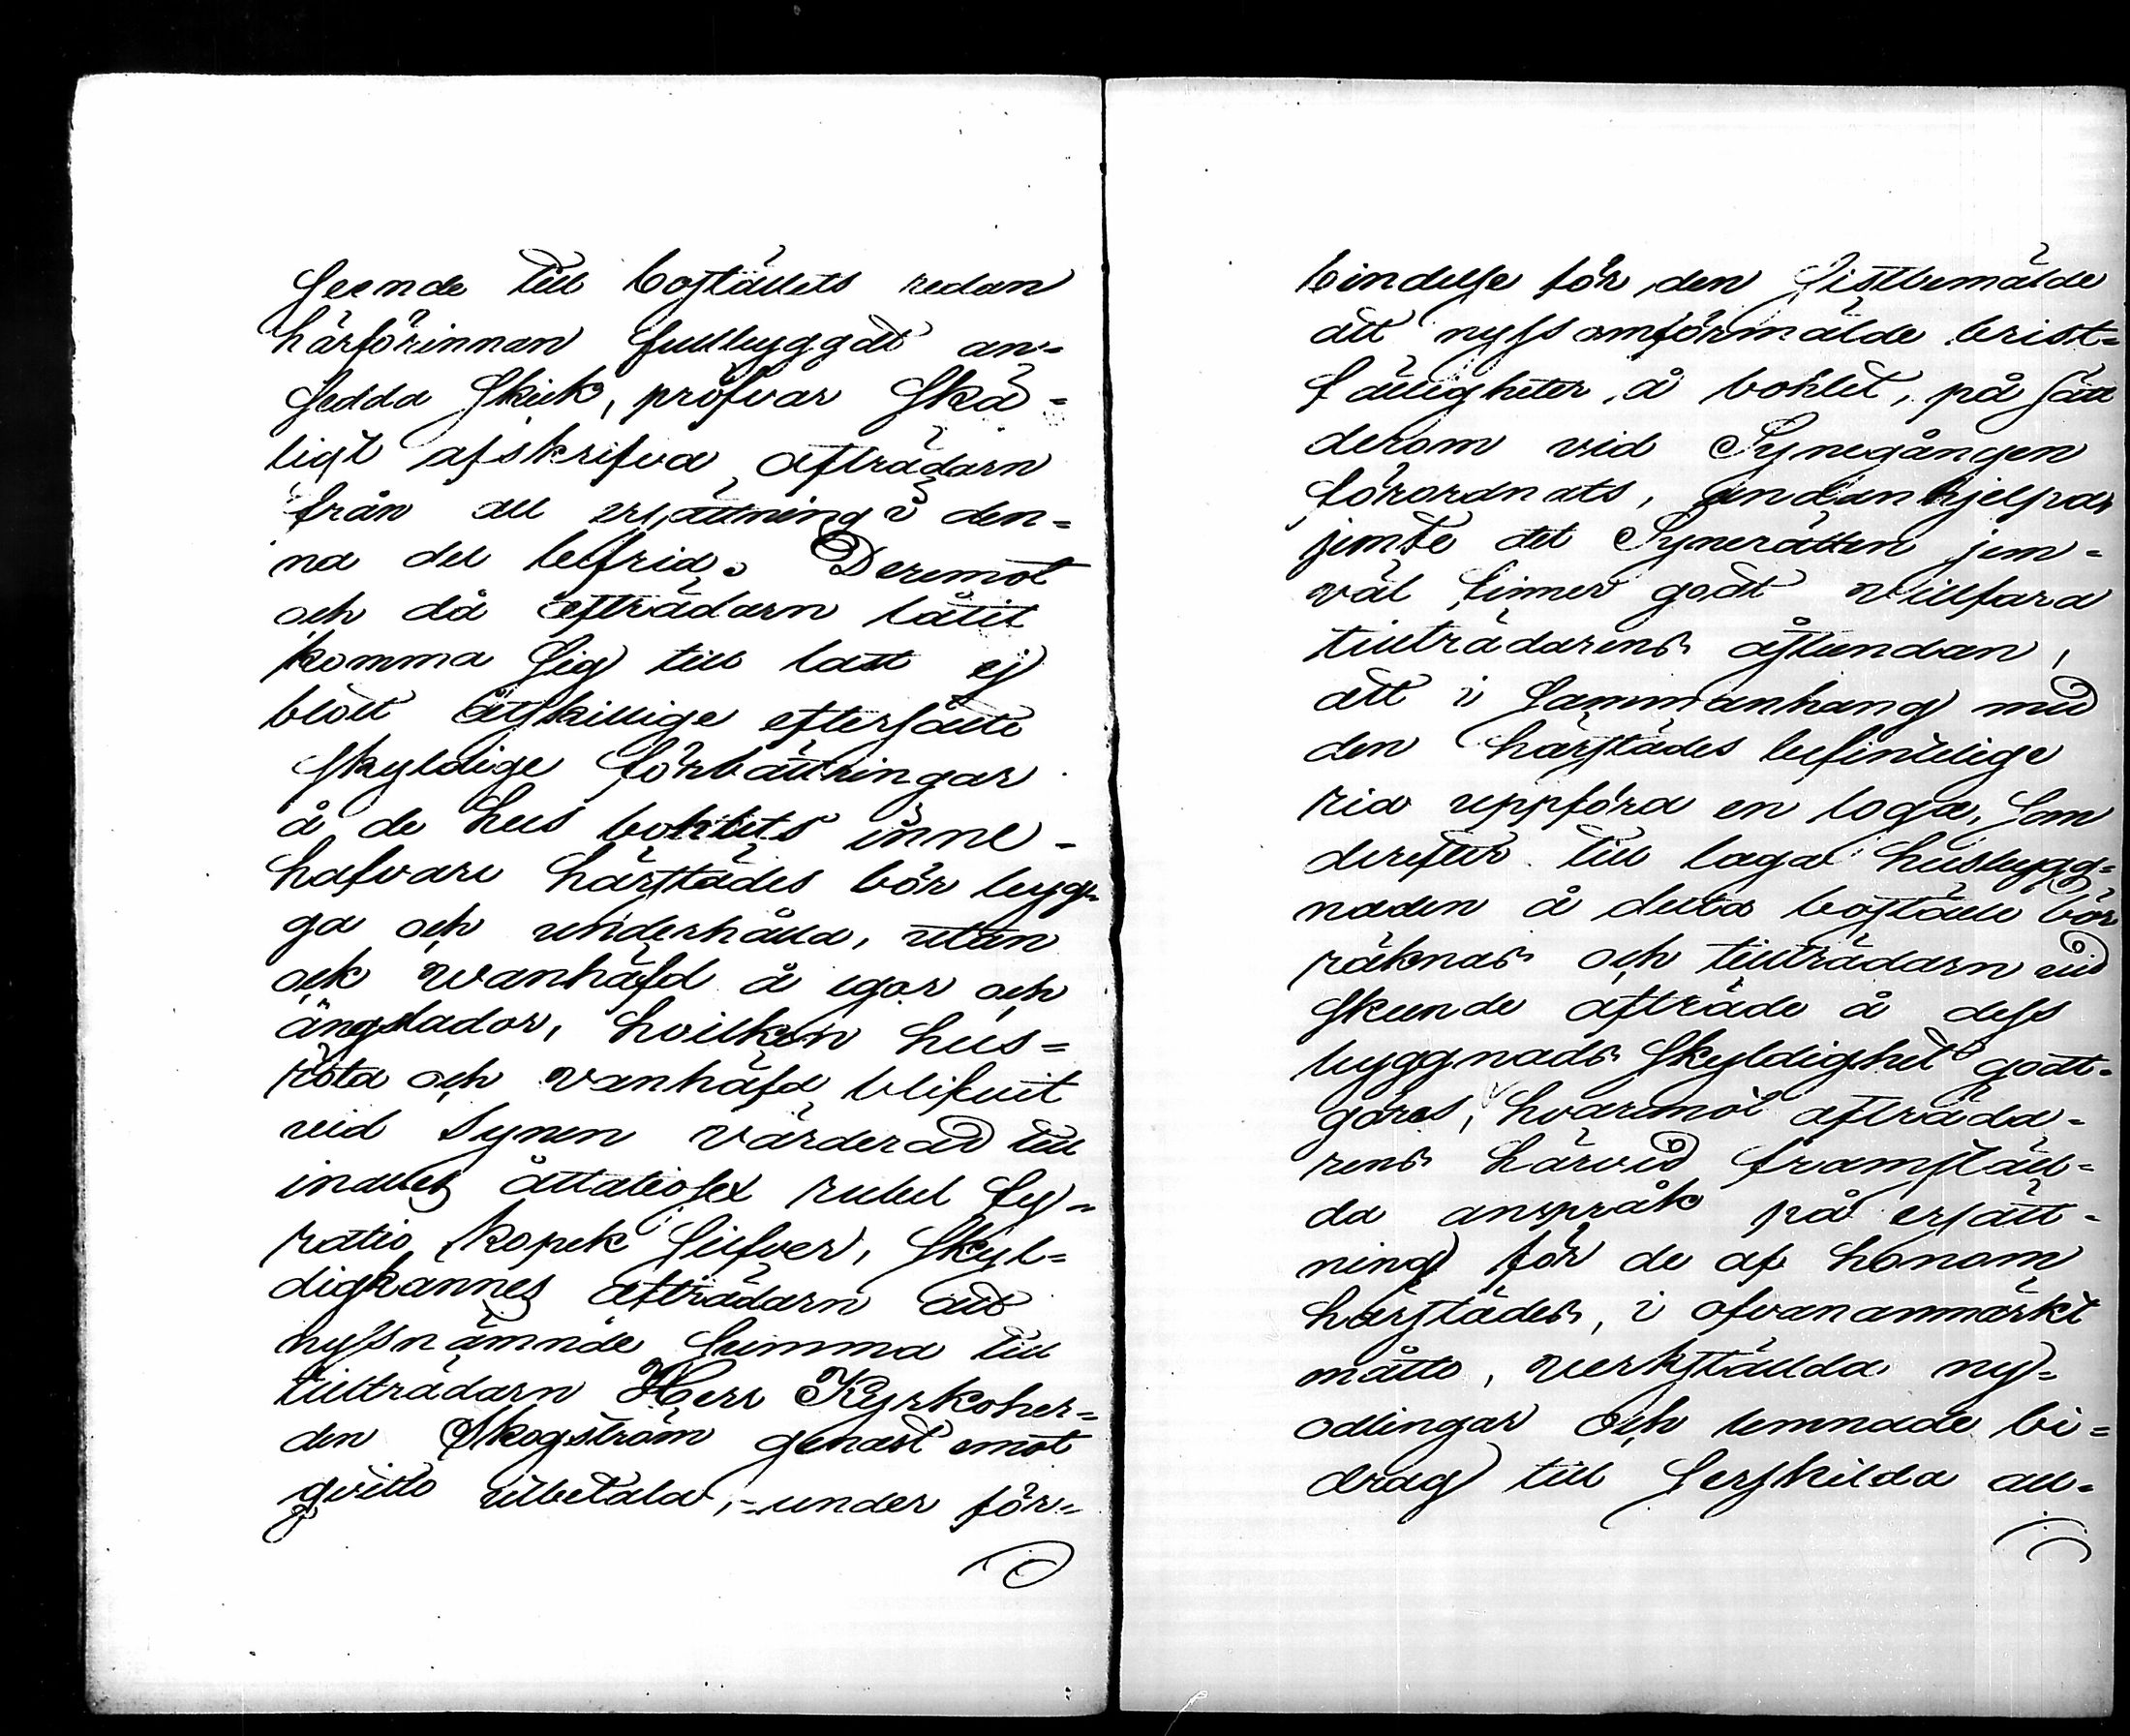 seende till boställets redan
härförinnan fullbyggdt an-
sedda skick, pröfvar skä-
ligt afskrifva afträdarn
från all ersättning i den-
na del befrid. Deremot
och då afträdarn låtit
komma sig till last ej
blott åtskillige eftersatte
skyldige förbättringar
å de hus bohlets inne-
hafvare härstädes bör byg-
ga och underhålla, utan
ock wanhäfd å egor och
ängslador, hvilken hus-
röta och vanhäfd blifvit
vid Synen värderad till
inalles åttatiosex rubel fy-
ratio kopek Silfver, skyl-
digkännes afträdarn att
nyssnämnde Summa till
tillträdarn Herr Kyrkoher-
den Skogström genast emot
qvitto utbetala,-under för-
bindelse för den sistbemälde
att nyss omförmälde brist-
fälligheter å bohlet, på sätt
derom vid Synegången
förordnats, undanhjelpa,
jemte det Synerätten jem-
väl finner godt villfara
tillträdarens åstundan,
att i sammanhang med
den härstädes befintelige
ria uppföra en loga, som
derefter till laga husbygg-
naden å detta boställe bör
räknas och tillträdarn vid
skeende afträde å dess
byggnads skyldighet godt-
göras, hvaremot afträda-
rens härvid framställ-
da anspråk på ersätt-
ning för de af honom
härstädes, i ofvananmärkt
måtto, verkställda ny-
odlingar och lemnade bi-
drag till serskilda all-